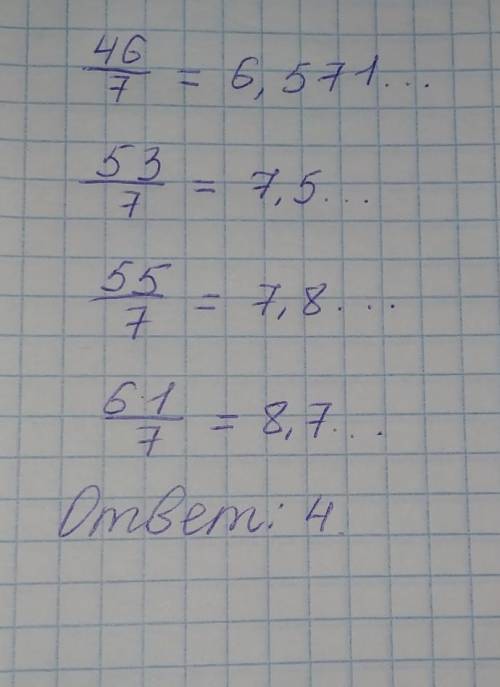 46/7 = 6,571...
53/7 = 7,5...
55/7 = 7,8...
61/7 = 8,7...
Ответ: 4